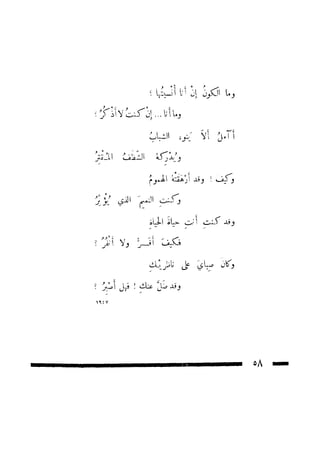 وما الكونُ إنْ أنا أُنْسيتُها ؟
وما أنا ... إنْ كنتُ لا أذْكُرُ ؟
أآملُ ألاّ ينوء الشبابُ
ويُدْرِكهُ الشَّظَفُ المُدْثِرُ
وكيف ! وقد أرْهَقَتْهُ الهمومُ
وكنتِ النعيمَ الذي يُؤْثَرُ
وقد كنتِ أنتِ حياةَ الحياةِ
فكيفَ أفِـرُّ ولا أنْفُرُ ؟
وكان صِبايَ على ناظريْكِ
وقد ضلَّ عنكِ ! فهل أصْبِرُ ؟
١٩٤٥
٥٨